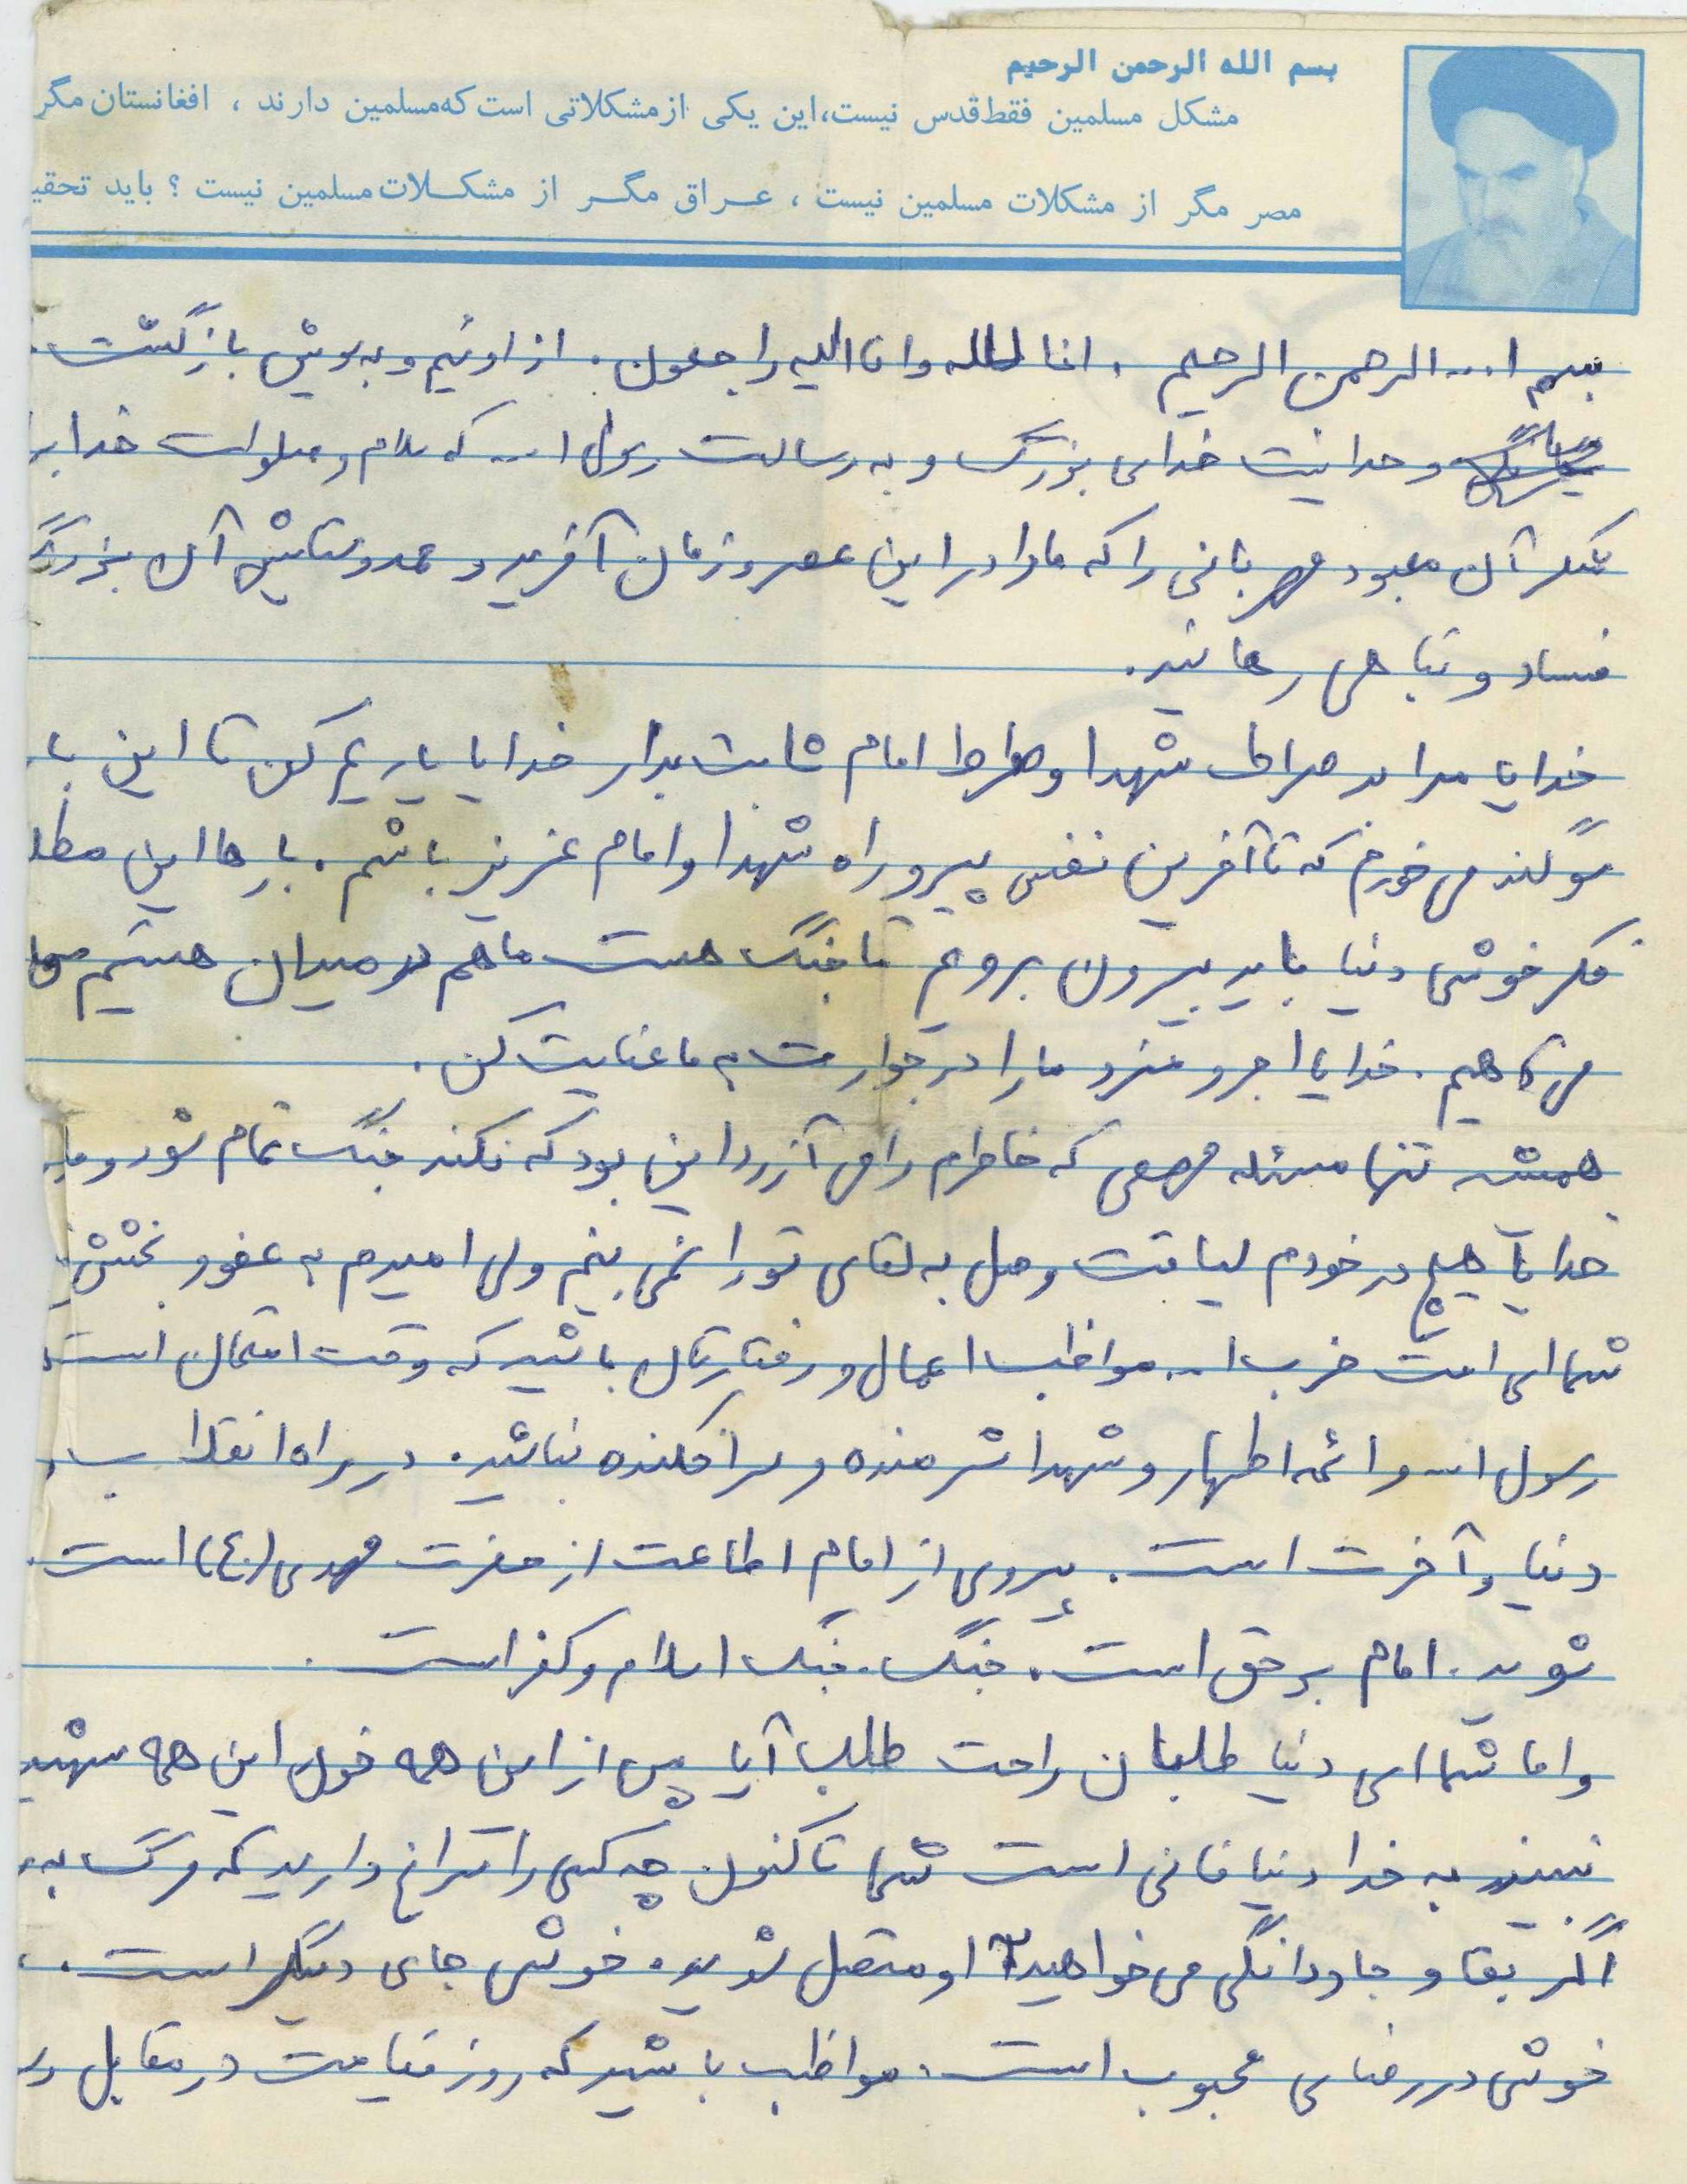 بسم الله الرحمن الرحیم
مشکل مسلمین فقط قدس نیست، این یکی از مشکلاتی است که مسلمین دارند ، افغانستان مگر
مصر مگر از مشکلات مسلمین نیست ، عراق مگر از مشکلات مسلمین نیست ؟ باید تحقی
بسم ا... الرحمن الرحیم . انا لله وانا الیه راجعون . از اوئیم و به سویش بازگشت
وحدانیت خدای بزرگ و به رسالت رسول ا... که سلام و صلوات خدا بر
شکر آن معبود مهربانی را که ما را در این عصر و زمان آفرید و حمد و ستایش آن بزرگ
فساد و تباهی رهانید.
خدایا مرا بر صراط شهدا و صراط امام ثابت بدار خدایا یاریم کن تا این با
سوگند می خورم که تا آخرین نفس پیرو راه شهدا و امام عزیز باشم . بارها این مطل
فکر خوشی دنیا باید بیرون برویم تا جنگ هست ما هم در میدان هستیم
می کاهیم . خدایا اجر و مزد ما را در جوارت به ما عنایت کن .
همیشه تنها مسئله مهمی که خاطرم را می آزرد این بود که نکند جنگ تمام شود و ما
خدایا هیچ در خودم لیاقت وصل به لقای تو را نمی بینم ولی امیدم به عفو و بخشش
شما ای امت حزب ا... مواظب اعمال و رفتارتان باشید که وقت امتحان است
رسول ا... و ائمه اطهار و شهدا شرمنده و سرافکنده نباشید. در راه انقلاب
دنیا و آخرت است . پیروی از امام اطاعت از حضرت مهدی (ع) است .
شوید . امام بر حق است . جنگ ، جنگ اسلام و کفر است .
و اما شما ای دنیا طلبان راحت طلب آیا پس از این همه خون این همه شهید
نیست به خدا دنیا فانی است شما تاکنون چه کسی را سراغ دارید که مرگ به
اگر بقا و جاودانگی می خواهید به او متصل شوید. خوشی جای دیگر است .
خوشی در رضای محبوب است . مواظب باشید که روز قیامت در مقابل